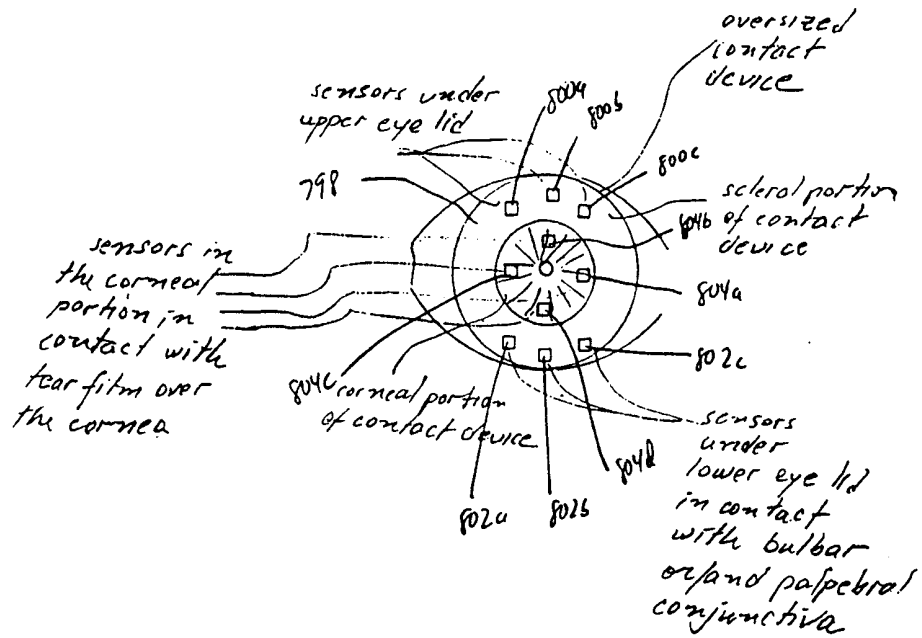 oversized
contact
device
sensors under
upper eye lid
800a
800b
800c
798
scleral portion
of contact
device
804b
sensors in
the corneal
portion in
contact with
tear film over
the cornea
804a
802c
804c
corneal portion
of contact device
804d
802a
802b
sensors
under
lower eye lid
in contact
with bulbar
or/and palpebral
conjunctiva